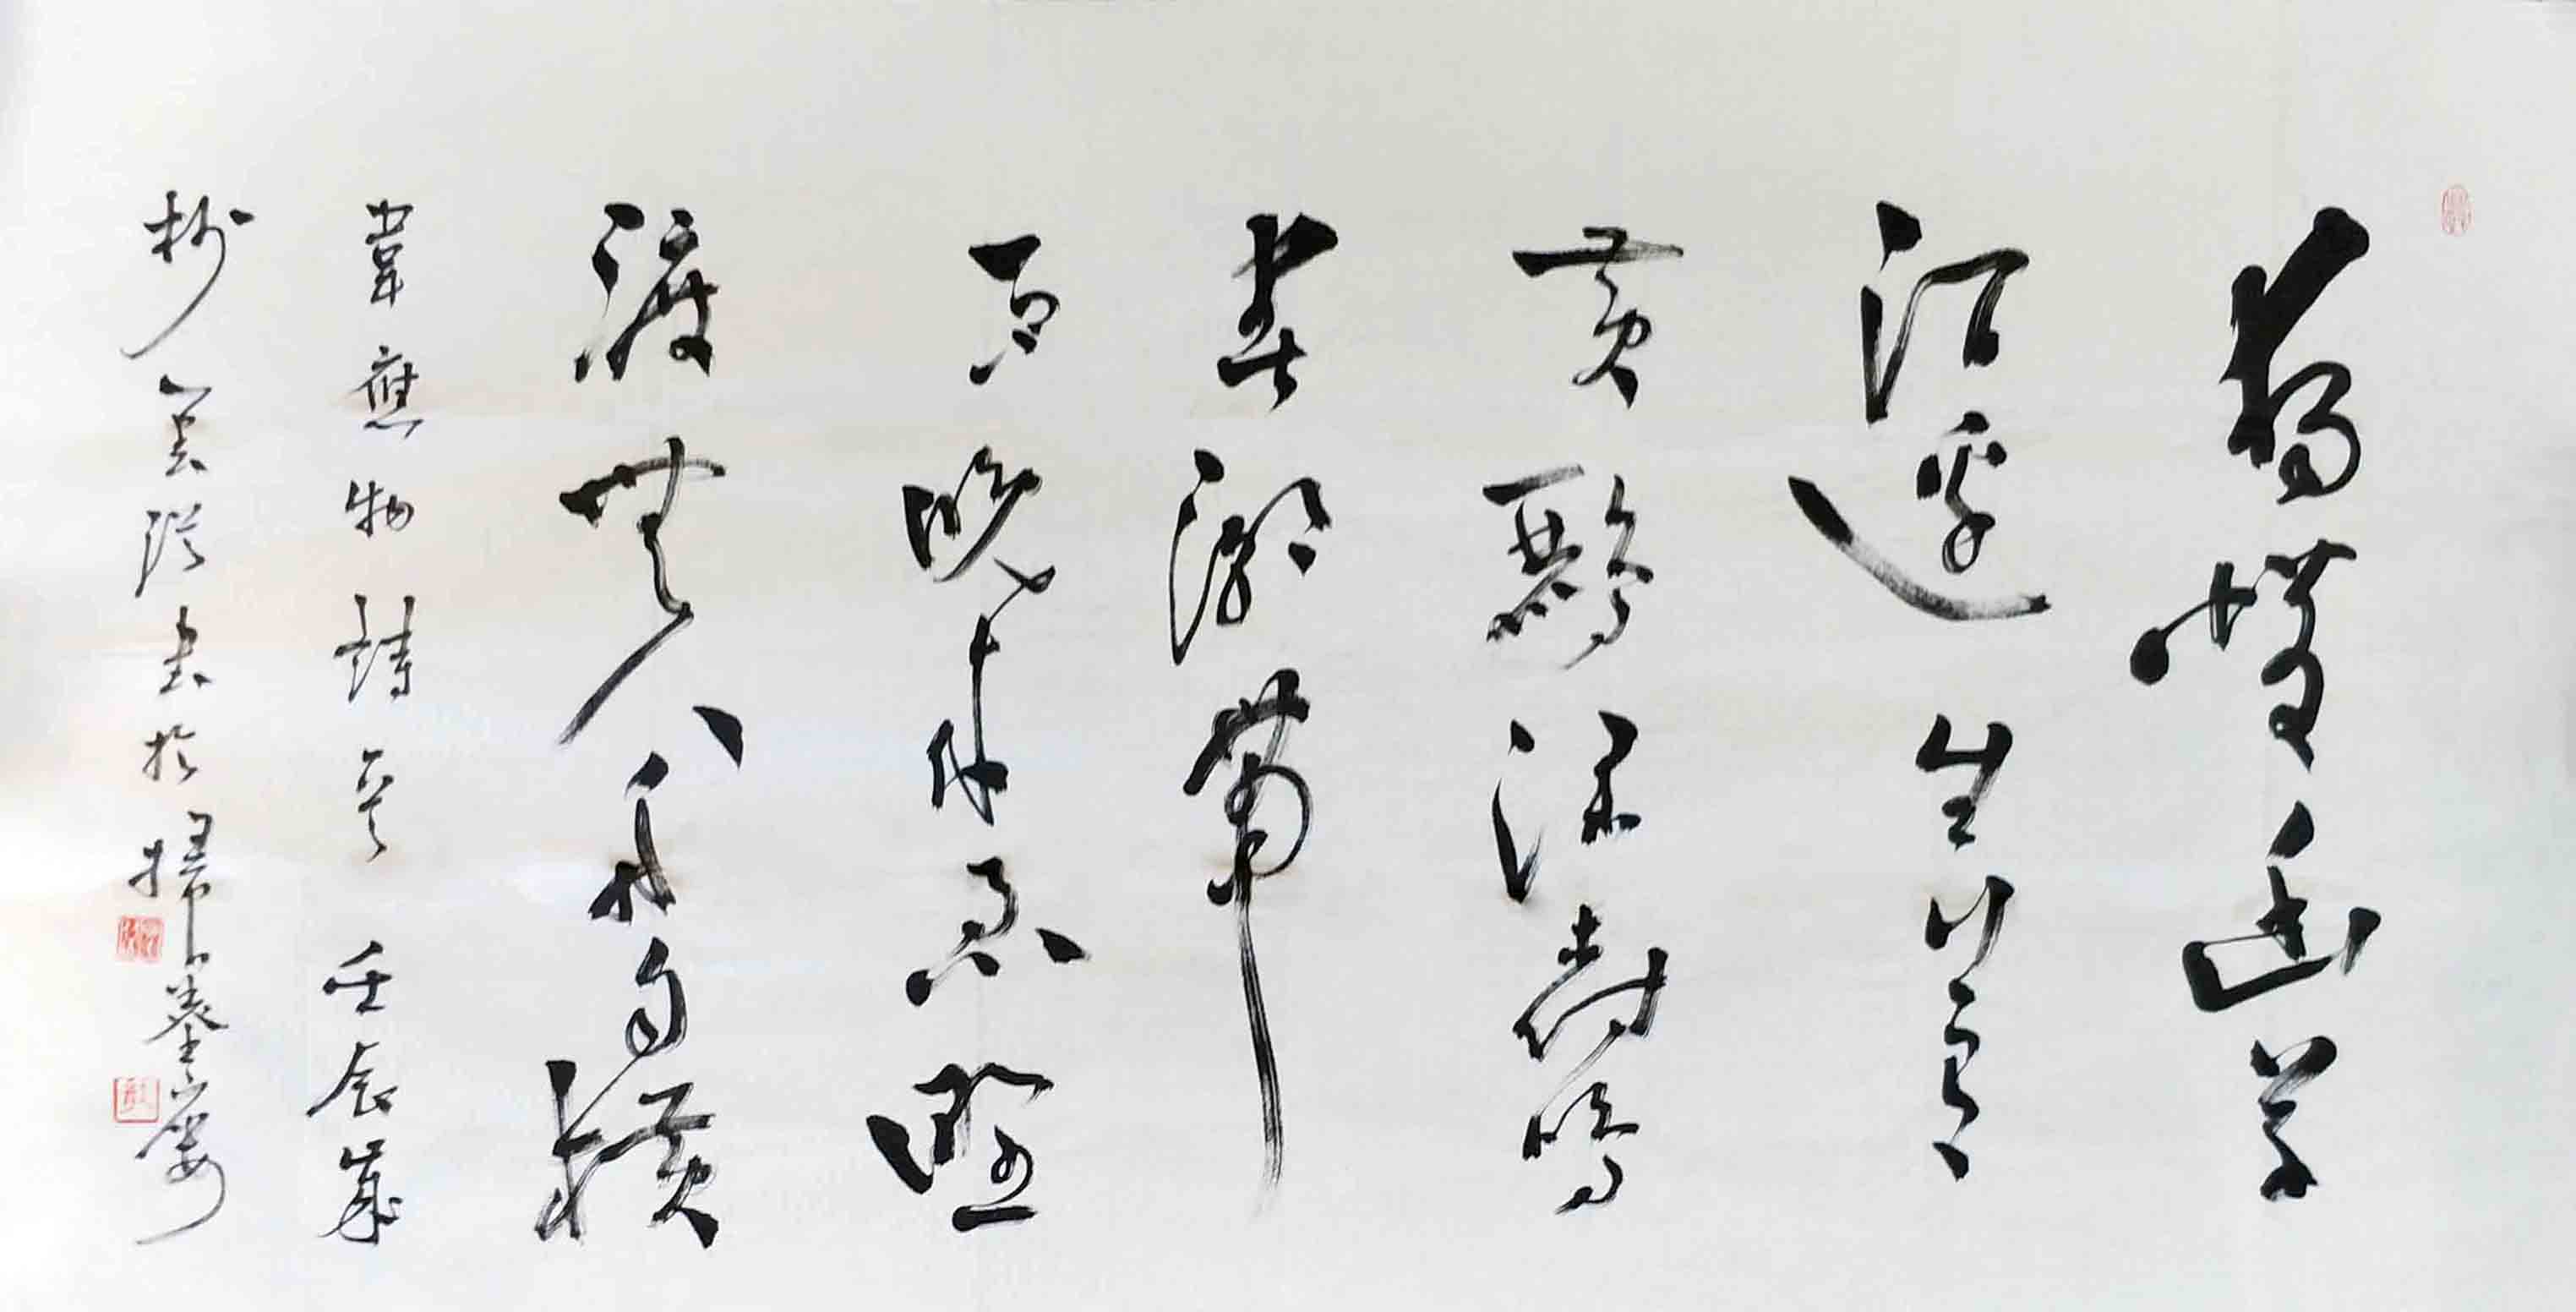 獨憐幽草
澗邊生上有
黃鸝深樹鳴
春潮帶
雨晚來急野
渡無人舟自橫
韋應物詩 壬辰歲
杪 書於掃